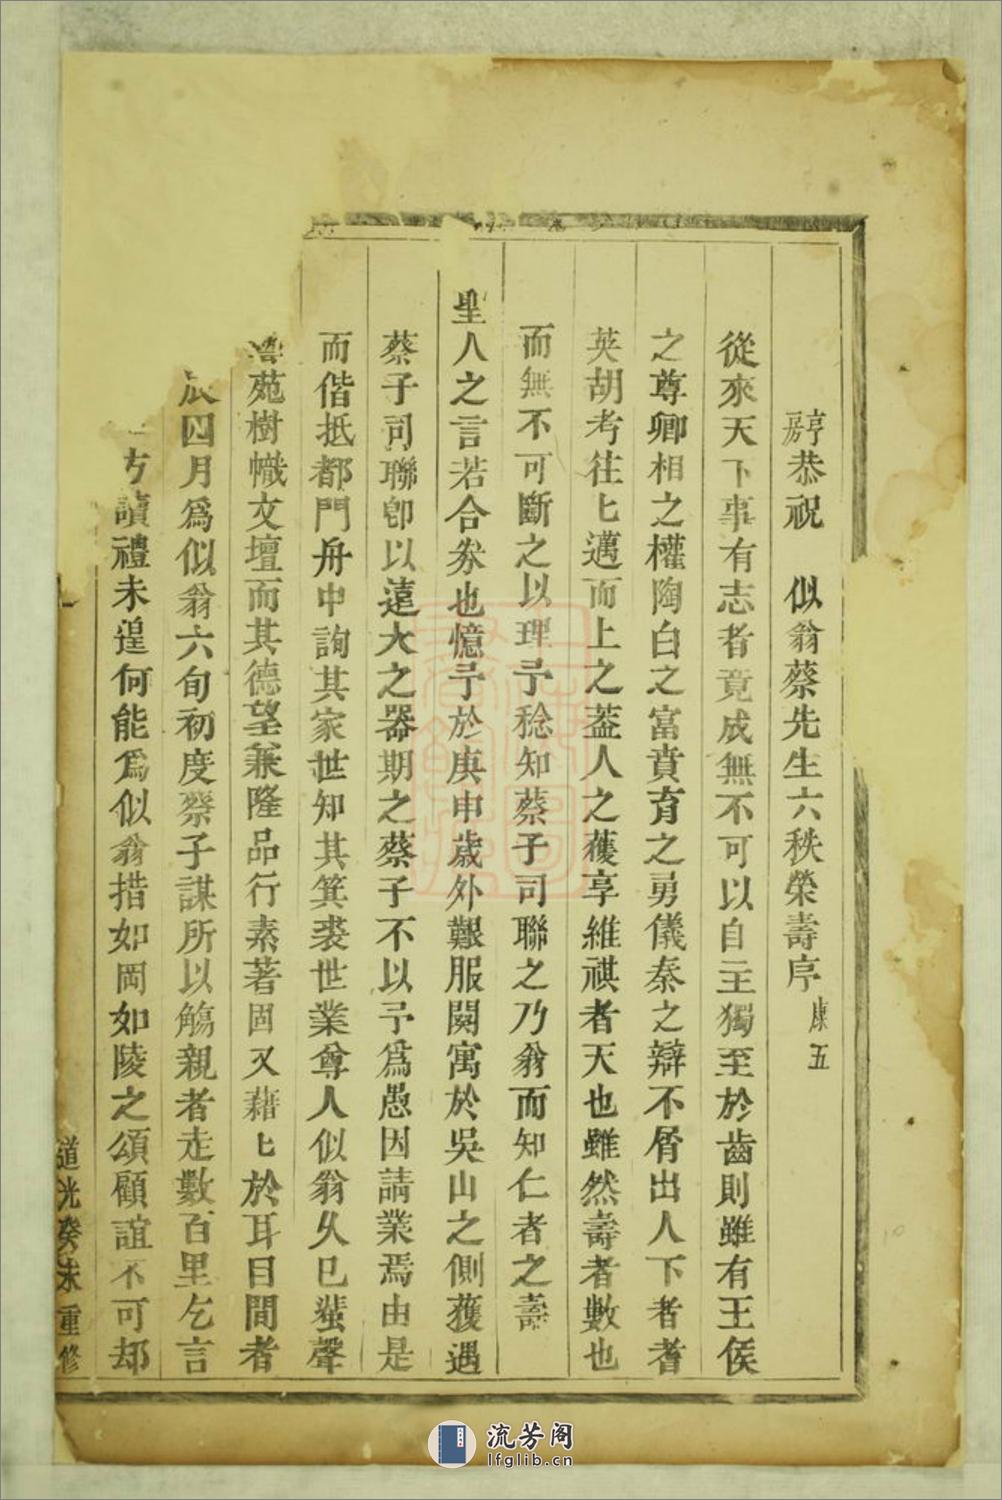 淳房恭祝 似翁蔡先生六秩榮壽序 康五
從來天下事有志者竟成無不可以自主獨至於齒則雖有王侯
之尊卿相之權陶白之富賁育之勇儀秦之辯不屑出人下者耆
英胡考往匕邁而上之葢人之獲享維祺者天也雖然壽者數也
而無不可斷之以理予稔知蔡子司聯之乃翁而知仁者之壽
聖人之言若合券也憶予於庚申歲外艱服闋寓於吳山之側獲遇
蔡子司聯卽以遠大之器期之蔡子不以予爲愚因請業焉由是
而偕抵都門舟中詢其家世知其箕裘世業尊人似翁久已蜚聲
苑樹幟文壇而其德望兼隆品行素著固又藉匕於耳目間者
辰四月爲似翁六旬初度蔡子謀所以觴親者走數百里乞言
方讀禮未遑何能爲似翁措如岡如陵之頌顧誼不可却
道光癸未重修
流芳阁
lfglib.cn